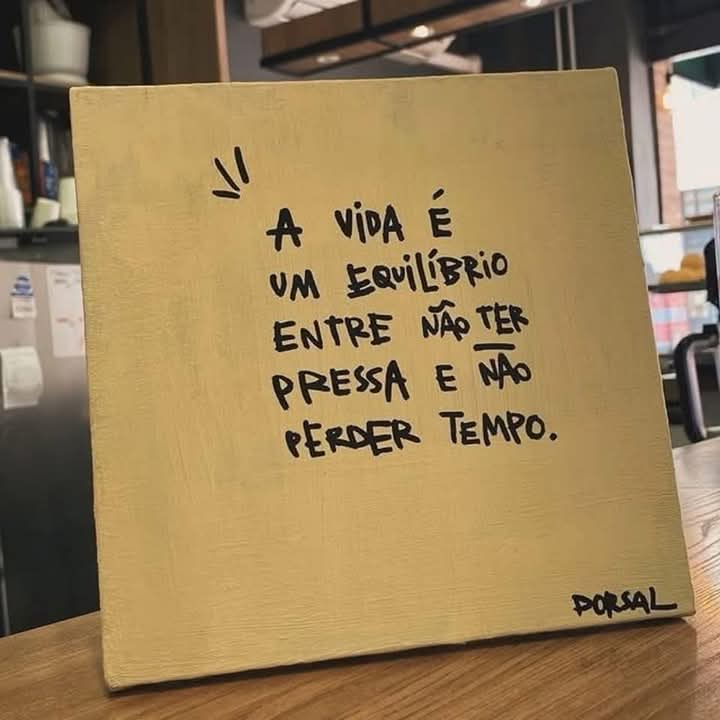 A VIDA É
UM EQUILÍBRIO
ENTRE NÃO TER
PRESSA E NÃO
PERDER TEMPO.
DORSAL